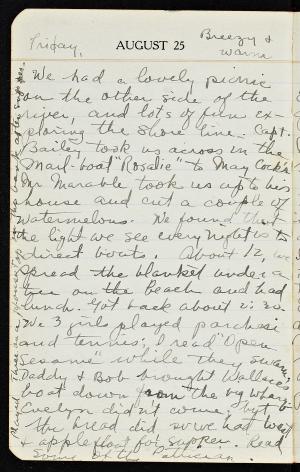 Friday,
AUGUST 25
Breezy &
warm
We had a lovely picnic
on the other side of the
river, and lots of fun ex-
ploring the shore line. Capt.
Bailey took us across in the
mail-boat "Rosalie" to May Cock's
Mr Marable took us up to his
house and cut a couple of
watermelons. We found that
the light we see every night is to
direct boats. About 12, we
spread the blanket under a
tree on the beach and had
lunch. Got back about 2:30.
We 3 girls played parchesi
and tennis; I read "Open
Sesame" while they swam,
Daddy & Bob brought Wallace's
boat down from the big wharf.
Evelyn didn't come, but
the bread did so we had
& apple for supper. Read
Some of the